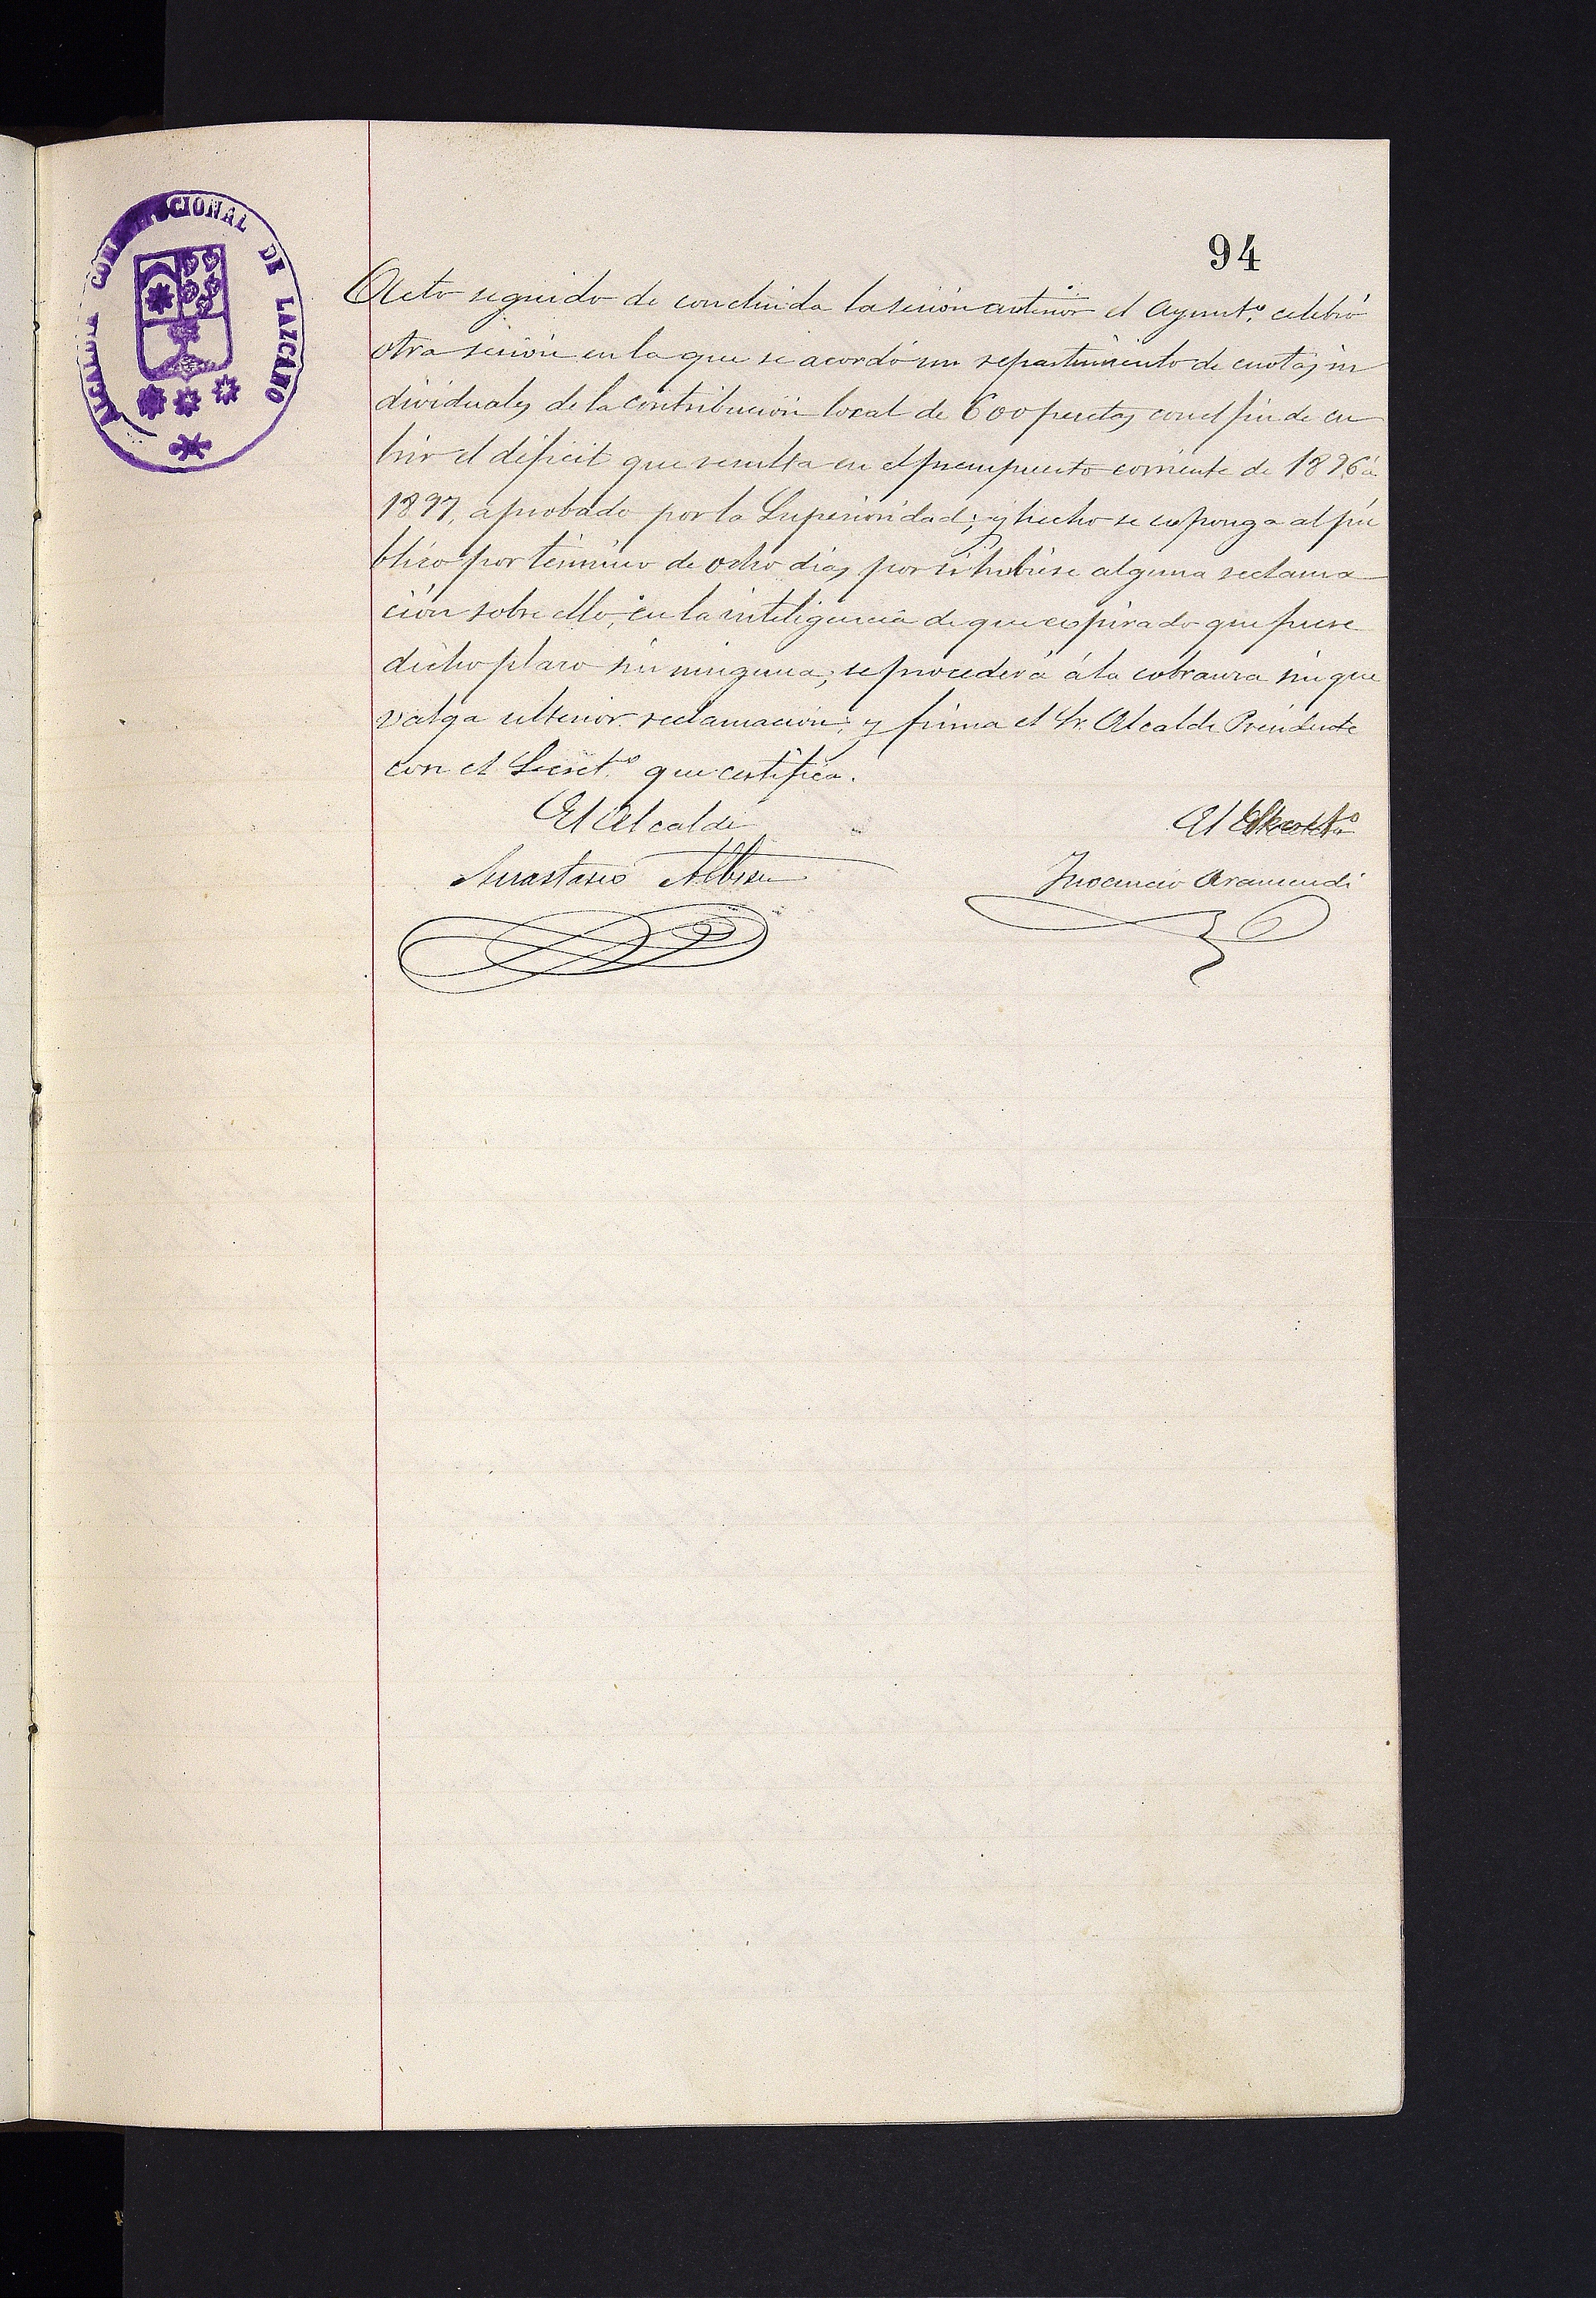 ALCALDIA CONSTITUCIONAL DE LAZCANO
94
Acto seguido de concluida la sesión anterior el Ayunt.º celebró
otra sesión en la que se acordó un repartimiento de cuotas in
dividuales de la contribución local de 600 pesetas con el fin de cu
brir el déficit que resulta en el presupuesto corriente de 1896 á
1897, aprobado por la Superioridad; y hecho se exponga al pú
blico por término de ocho días por si hubiese alguna reclama
ción sobre ello, en la inteligencia de que expirado que fuese
dicho plazo sin ninguna, se procederá á la cobranza sin que
valga ulterior reclamación; y firma el Sr. Alcalde Presidente
con el Secret.º que certifica.
El Alcalde
El Secret.º
Anastasio Albisu
Inocencio Aramendi